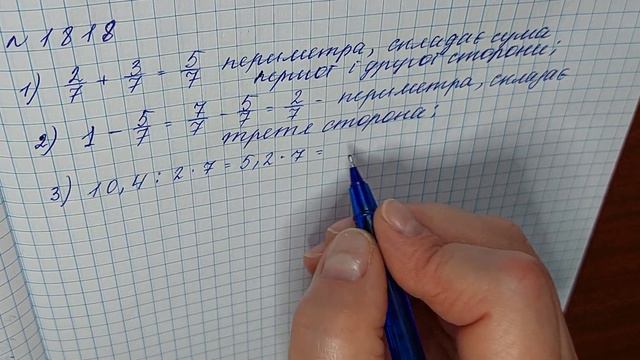 № 1818
1) 2/7 + 3/7 = 5/7 периметра, складає сума
першої і другої сторони;
2) 1 - 5/7 = 7/7 - 5/7 = 2/7 - периметра, складає
третя сторона;
3) 10,4 : 2 · 7 = 5,2 · 7 =